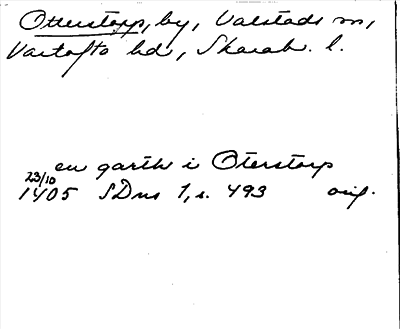 Otterstorp, by, Valstads sn,
Vartofta hd, Skarab. l.
en garth i Oterstorp
23/10
1405 SDns 1, s. 493 orig.